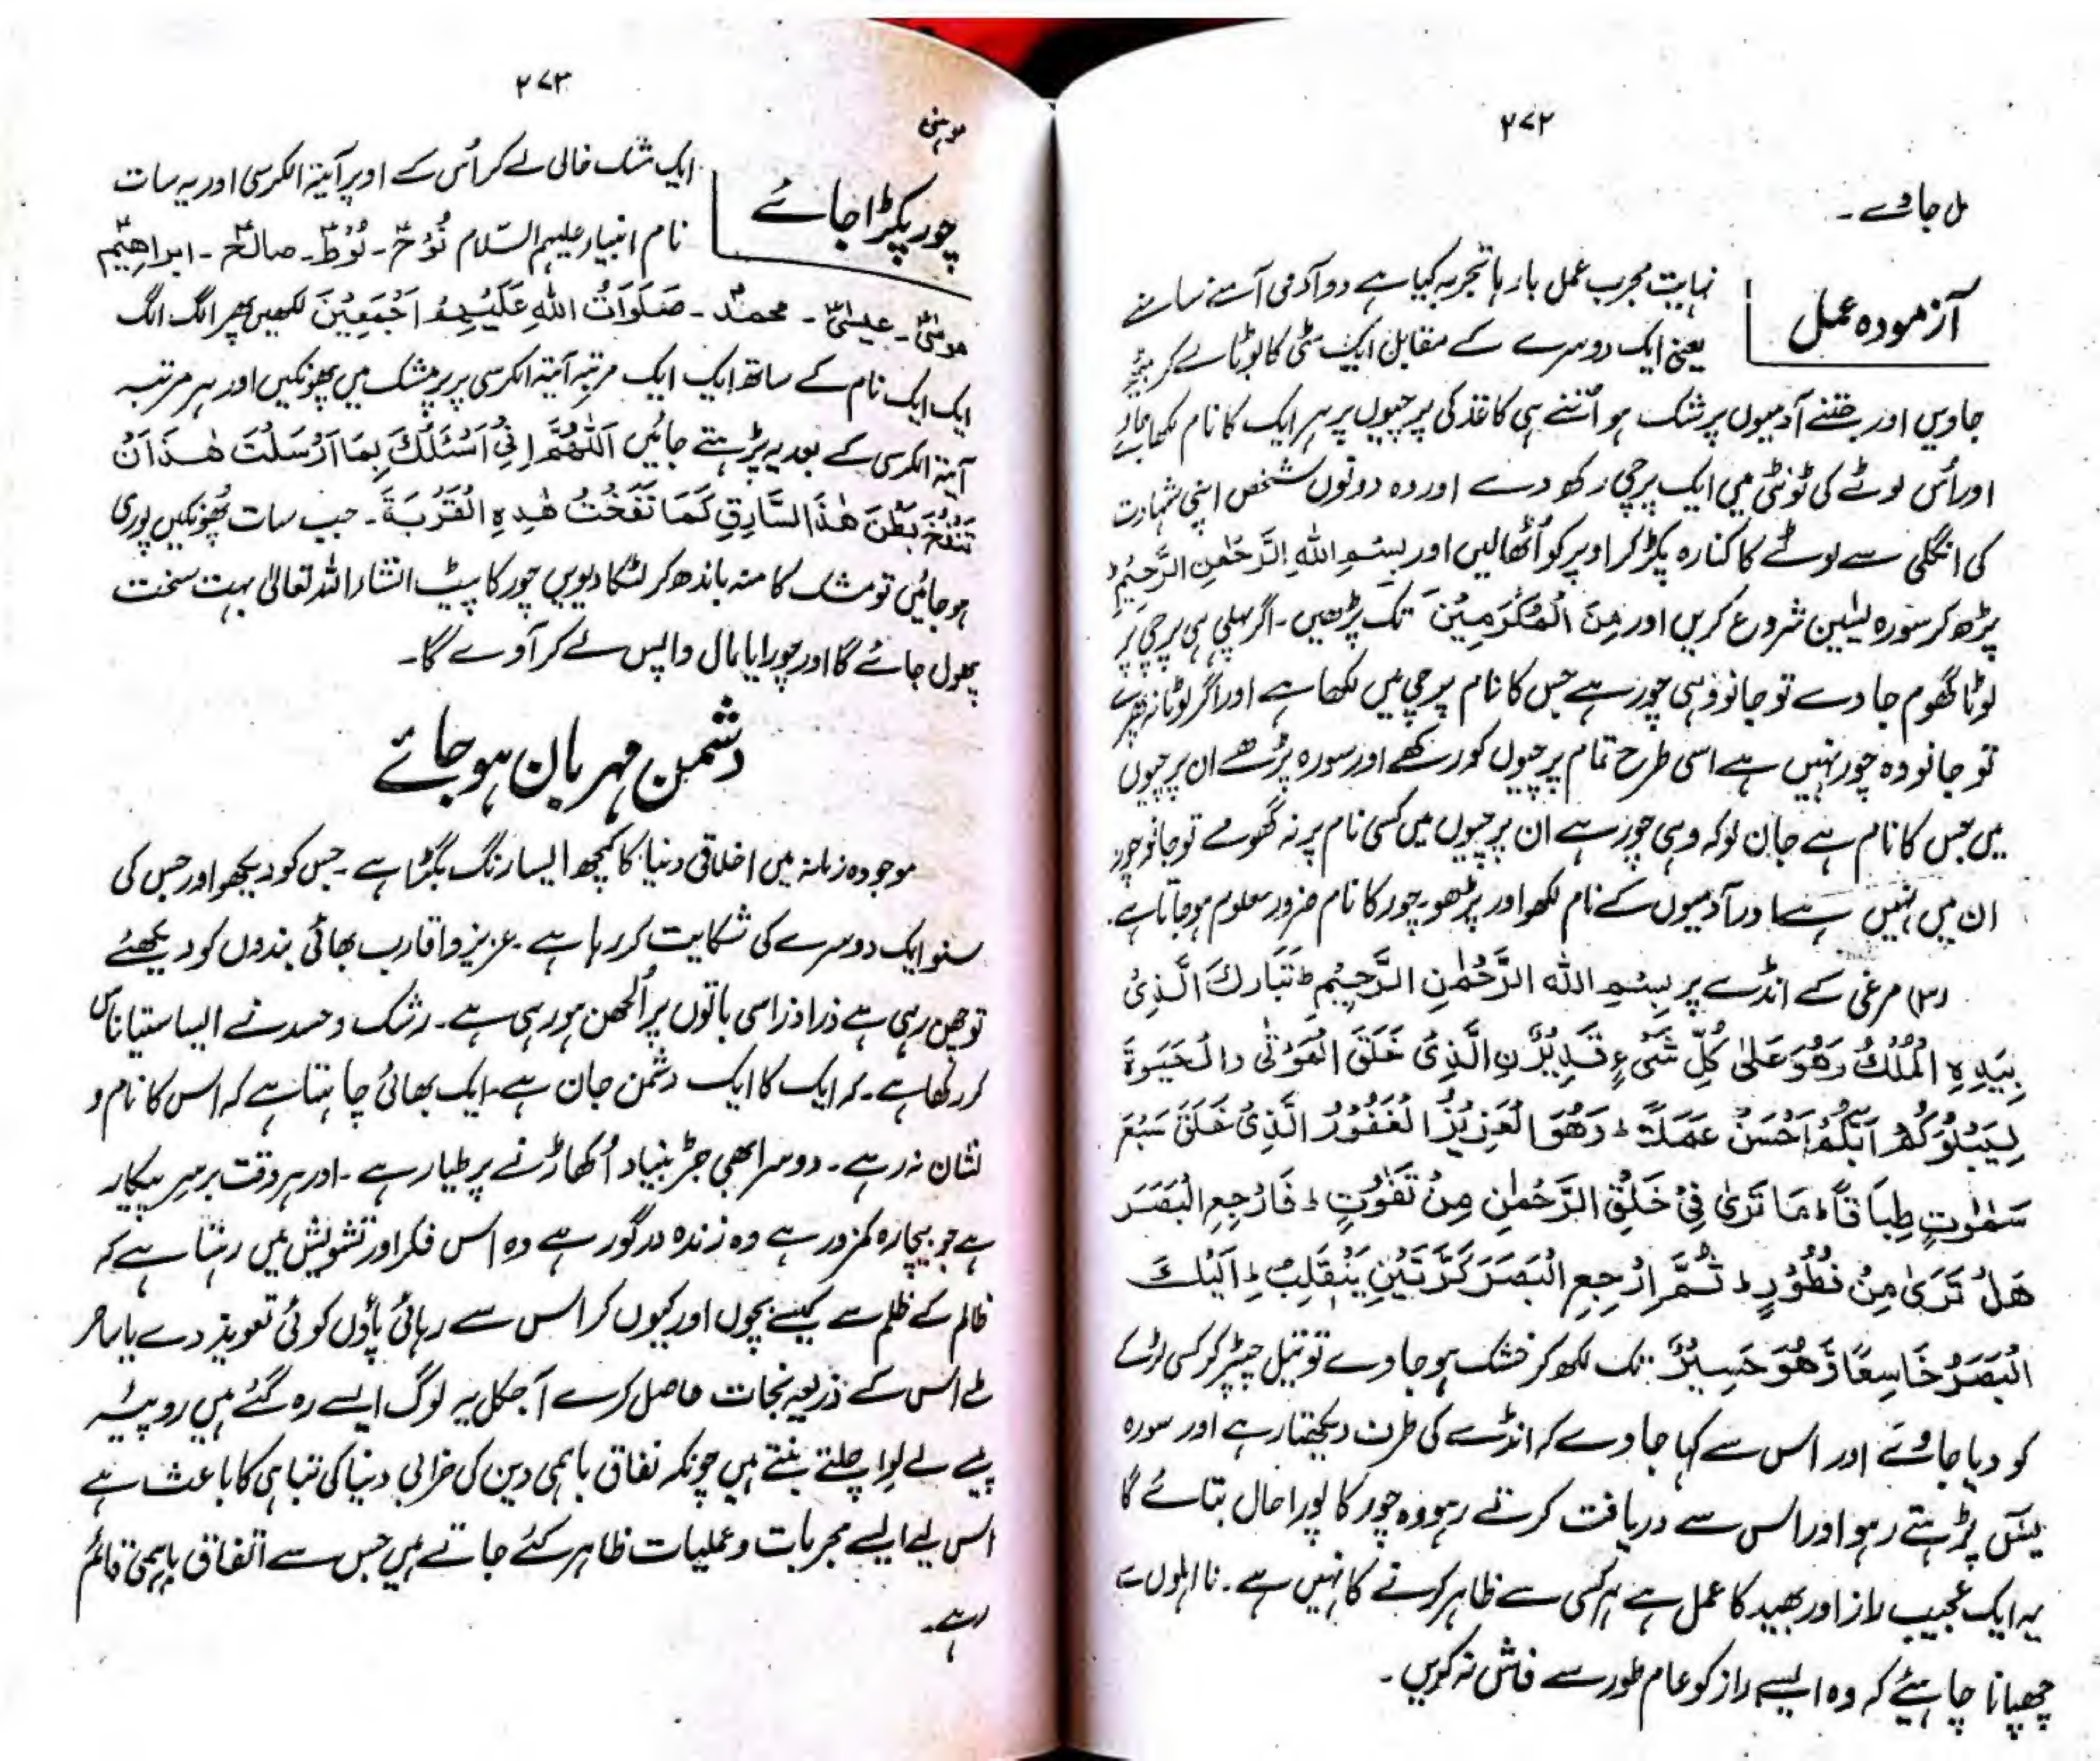 ۲۷۲
مل جاوے۔
آزمودہ عمل
نہایت مجرب عمل بارہا تجربہ کیا ہے دو آدمی آمنے سامنے
یعنی ایک دوسرے کے مقابل ایک مٹی کا لوٹا لے کر بیٹھ
جاویں اور جتنے آدمیوں پر شک ہو اُتنے ہی کاغذ کی پرچیوں پر ہر ایک کا نام لکھا جائے
اور اُس لوٹے کی ٹونٹی میں ایک پرچی رکھ دے اور وہ دونوں شخص اپنی شہادت
کی انگلی سے لوٹے کا کنارہ پکڑ کر اوپر کو اُٹھالیں اور بِسْمِ اللهِ الرَّحْمٰنِ الرَّحِیْمِ
پڑھ کر سورہ یٰسین شروع کریں اور مِنَ الْمُكْرَمِیْنَ تک پڑھیں۔ اگر پہلی ہی پرچی پر
لوٹا گھوم جاوے تو جانو وہی چور ہے جس کا نام پرچی میں لکھا ہے اور اگر لوٹا نہ پھرے
تو جانو وہ چور نہیں ہے اسی طرح تمام پرچیوں کو رکھے اور سورہ پڑھے ان پرچیوں
میں جس کا نام ہے جان لو کہ وہی چور ہے ان پرچیوں میں کسی نام پر نہ گھومے تو جانو چور
ان میں نہیں ہے اور آدمیوں کے نام لکھو اور پڑھو۔ چور کا نام ضرور معلوم ہو جاتا ہے۔
(۳) مرغی کے انڈے پر بِسْمِ اللهِ الرَّحْمٰنِ الرَّحِیْمِ ط تَبَارَكَ الَّذِیْ
بِیَدِهِ الْمُلْكُ وَهُوَ عَلٰی كُلِّ شَیْءٍ قَدِیْرُ نِ الَّذِیْ خَلَقَ الْمَوْتٰی وَالْحَیٰوةَ
لِیَبْلُوَكُمْ اَیُّكُمْ اَحْسَنُ عَمَلًا ط وَهُوَ الْعَزِیْزُ الْغَفُوْرُ الَّذِیْ خَلَقَ سَبْعَ
سَمٰوٰتٍ طِبَاقًا ط مَا تَرٰی فِیْ خَلْقِ الرَّحْمٰنِ مِنْ تَفٰوُتٍ ط فَارْجِعِ الْبَصَرَ
هَلْ تَرٰی مِنْ فُطُوْرٍ ط ثُمَّ ارْجِعِ الْبَصَرَ كَرَّتَیْنِ یَنْقَلِبْ اِلَیْكَ
الْبَصَرُ خَاسِعًا وَّهُوَ حَسِیْرٌ تک لکھ کر خشک ہو جاوے تو تیل چپڑ کر کسی لڑکے
کو دیا جاوے اور اس سے کہا جاوے کہ انڈے کی طرف دیکھتا رہے اور سورہ
یٰسٓ پڑہتے رہو اور اس سے دریافت کرتے رہو وہ چور کا پورا حال بتائے گا
یہ ایک عجیب راز اور بھید کا عمل ہے ہر کسی سے ظاہر کرنے کا نہیں ہے۔ نا اہلوں سے
چھپانا چاہئے کہ وہ ایسے راز کو عام طور سے فاش نہ کریں۔
۲۷۳
موہنی
چور پکڑا جائے
ایک مشک خالی لے کر اُس کے اوپر آیتہ الکرسی اور یہ سات
نام انبیاء علیہم السّلام نُوْحؑ۔ لُوْطؑ۔ صالحؑ۔ ابراهیمؑ
موسٰیؑ۔ عیسٰیؑ۔ محمدؐ۔ صَلَوَاتُ اللهِ عَلَیْهِمْ اَجْمَعِیْنَ لکھیں پھر الگ الگ
ایک ایک نام کے ساتھ ایک ایک مرتبہ آیتہ الکرسی پر پر مشک میں پھونکیں اور ہر مرتبہ
آیتہ الکرسی کے بعد یہ پڑہتے جائیں اَللّٰهُمَّ اِنِّیْ اَسْئَلُكَ بِمَا اَرْسَلْتَ هٰذَا اَنْ
تَنْفُخَ بَطْنَ هٰذَا السَّارِقِ كَمَا نَفَخْتُ هٰذِهِ الْقُرْبَةَ۔ جب سات پُھونکیں پوری
ہو جائیں تو مشک کا منہ باندھ کر لٹکا دیویں چور کا پیٹ انشاء اللہ تعالیٰ بہت سخت
پھول جائے گا اور چورایا مال واپس لے کر آوے گا۔
دشمن مہربان ہو جائے
موجودہ زمانہ میں اخلاقی دنیا کا کچھ ایسا رنگ بگڑا ہے۔ جس کو دیکھو اور جس کی
سنو ایک دوسرے کی شکایت کر رہا ہے۔ عزیز و اقارب بھائی بندوں کو دیکھئے
تو چھن رہی ہے ذرا ذرا سی باتوں پر اُلجھن ہو رہی ہے۔ رشک و حسد نے ایسا ستیاناس
کر رکھا ہے۔ کہ ایک کا ایک دشمن جان ہے۔ ایک بھائی چاہتا ہے کہ اس کا نام و
نشان نہ رہے۔ دوسرا بھی جڑ بنیاد اُکھاڑنے پر طیار ہے۔ اور ہر وقت برسر پیکار
ہے جو بیچارہ کمزور ہے وہ زندہ درگور ہے وہ اس فکر اور تشویش میں رہتا ہے کہ
ظالم کے ظلم سے کیسے بچوں اور کیوں کر اس سے رہائی پاؤں کوئی تعویذ دے یا ساحر
ملے اس کے ذریعہ نجات حاصل کرے آجکل یہ لوگ ایسے رہ گئے ہیں روپیہ
پیسے لے لوا چلتے بنتے ہیں چونکہ نفاق باہمی دین کی خرابی دنیا کی تباہی کا باعث ہے
اس لیے ایسے مجربات و عملیات ظاہر کئے جاتے ہیں جس سے اتفاق باہمی قائم
رہے۔